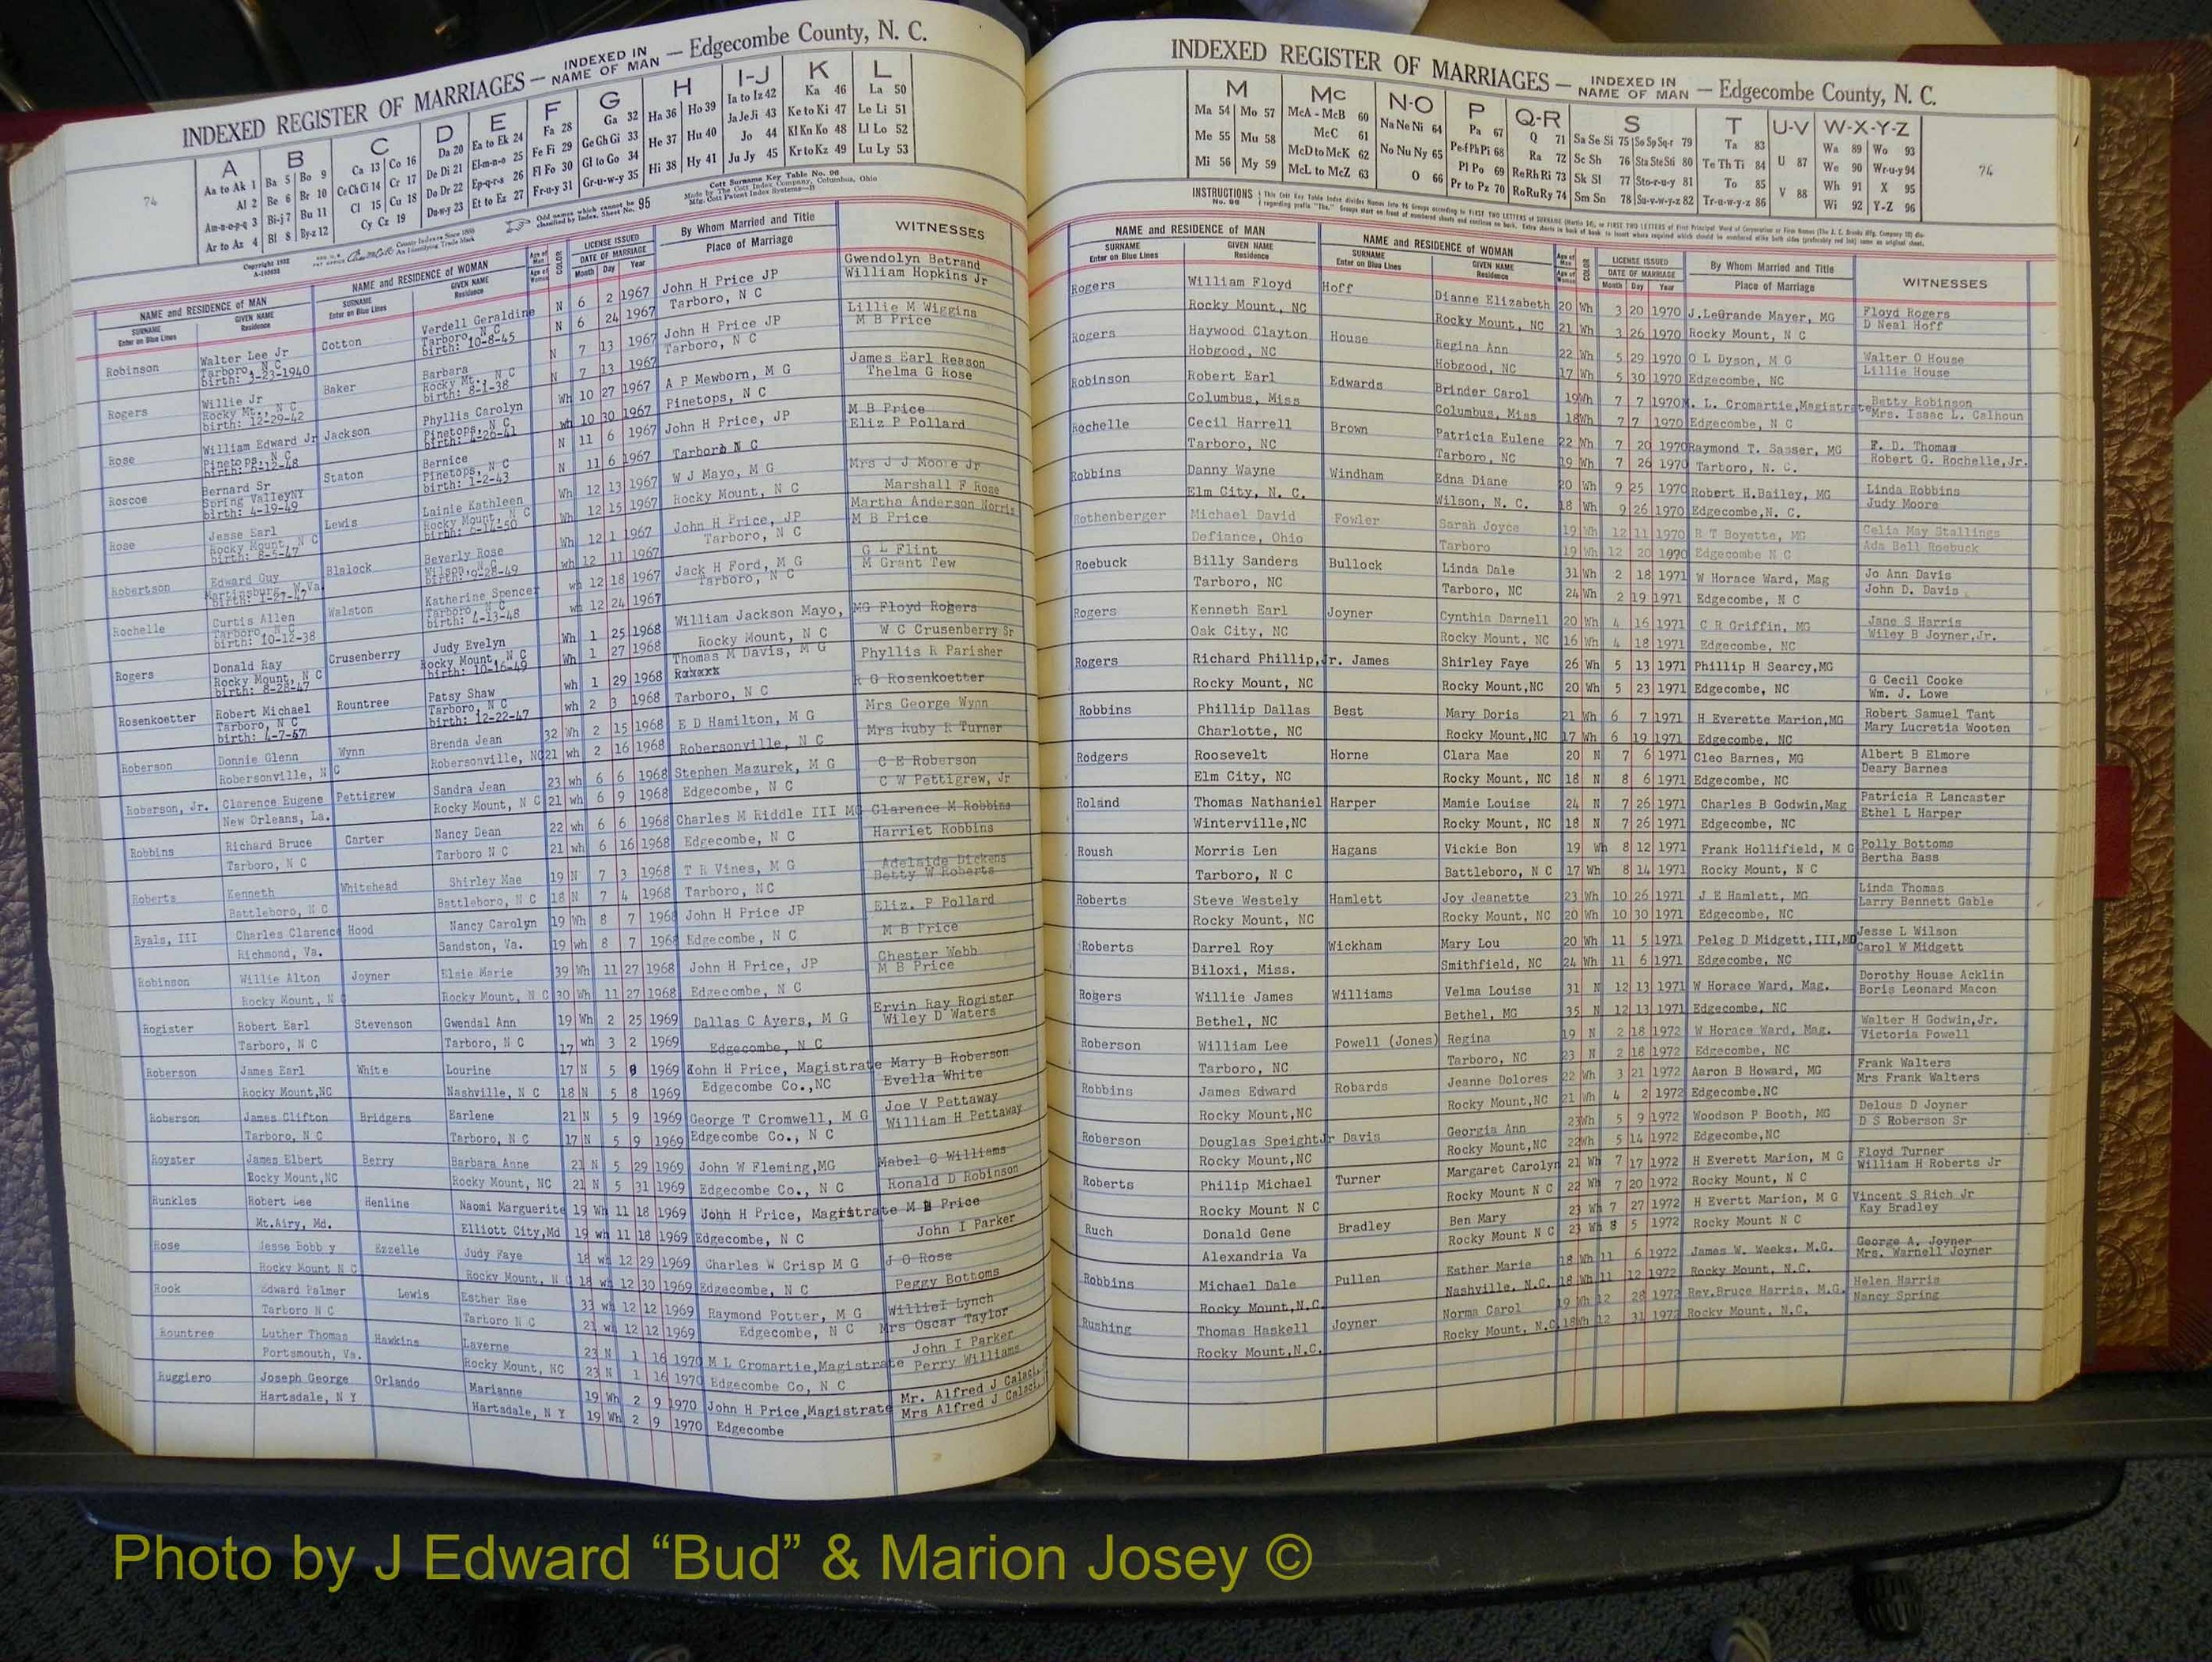 INDEXED REGISTER OF MARRIAGES — INDEXED IN NAME OF MAN — Edgecombe County, N. C.
A B C D E F G H I-J K L
Aa to Ak 1 Ba 5 Bo 9 Ca 13 Co 16 Da 20 Ea to Ek 24 Fa 28 Ga 32 Ha 36 Ho 39 Ia to Iz 42 Ka 46 La 50
Al 2 Be 6 Br 10 Ce Ch Ci 14 Cr 17 De Di 21 El-m-n-o 25 Fe Fi 29 Ge Gh Gi 33 He 37 Hu 40 Ja Je Ji 43 Ke to Ki 47 Le Li 51
Am-n-o-p-q 3 Bi-j 7 Bu 11 Cl 15 Cu 18 Do Dr 22 Ep-q-r-s 26 Fl Fo 30 Gl to Go 34 Hi 38 Hy 41 Jo 44 Kl Kn Ko 48 Ll Lo 52
Ar to Az 4 Bl 8 By-z 12 Cy Cz 19 Du-w-y 23 Et to Ez 27 Fr-u-y 31 Gr-u-w-y 35 Ju Jy 45 Kr to Kz 49 Lu Ly 53
74
Copyright 1932
Odd names which cannot be classified by Index, Sheet No. 95
Cott Surname Key Table No. 96
Made by The Cott Index Company, Columbus, Ohio
NAME and RESIDENCE of MAN NAME and RESIDENCE of WOMAN COLOR LICENSE ISSUED By Whom Married and Title WITNESSES
SURNAME GIVEN NAME SURNAME GIVEN NAME DATE OF MARRIAGE Place of Marriage
Enter on Blue Lines Residence Enter on Blue Lines Residence Month Day Year
Robinson Walter Lee Jr Cotton Verdell Geraldine N 6 2 1967 John H Price JP Gwendolyn Betrand
Tarboro, N C Tarboro, N C N 6 24 1967 Tarboro, N C William Hopkins Jr
birth: 3-23-1940 birth: 10-8-45
Rogers Willie Jr Baker Barbara N 7 13 1967 John H Price JP Lillie M Wiggins
Rocky Mt., N C Rocky Mt., N C N 7 13 1967 Tarboro, N C M B Price
birth: 12-29-42 birth: 8-1-38
Rose William Edward Jr Jackson Phyllis Carolyn Wh 10 27 1967 A P Mewborn, M G James Earl Reason
Pinetops, N C Pinetops, N C wh 10 30 1967 Pinetops, N C Thelma G Rose
Roscoe Bernard Sr Staton Bernice N 11 6 1967 John H Price, JP M B Price
Spring Valley NY Pinetops, N C N 11 6 1967 Tarboro N C Eliz P Pollard
birth: 4-19-49 birth: 1-2-43
Rose Jesse Earl Lewis Lainie Kathleen Wh 12 13 1967 W J Mayo, M G Mrs J J Moore Jr
Rocky Mount, N C Rocky Mount, N C Wh 12 15 1967 Rocky Mount, N C Marshall F Rose
birth: 8-5-47 birth: 6-14-50 Martha Anderson Norris
Robertson Edward Guy Blalock Beverly Rose Wh 12 1 1967 John H Price, JP M B Price
Martinsburg, W.Va. Wilson, N C wh 12 11 1967 Tarboro, N C
birth: 1-27-47 birth: 9-28-49
Rochelle Curtis Allen Walston Katherine Spencer wh 12 18 1967 Jack H Ford, M G G L Flint
Tarboro, N C Tarboro, N C wh 12 24 1967 Tarboro, N C M Grant Tew
birth: 10-12-38 birth: 4-13-48
Rogers Donald Ray Crusenberry Judy Evelyn Wh 1 25 1968 William Jackson Mayo, MG Floyd Rogers
Rocky Mount, N C Rocky Mount, N C Wh 1 27 1968 Rocky Mount, N C W C Crusenberry Sr
birth: 8-28-47 birth: 10-16-49
Rosenkoetter Robert Michael Rountree Patsy Shaw wh 1 29 1968 Thomas M Davis, M G Phyllis R Parisher
Tarboro, N C Tarboro, N C wh 2 3 1968 Tarboro, N C R G Rosenkoetter
birth: 4-7-47 birth: 12-22-47
Roberson Donnie Glenn Wynn Brenda Jean 32 Wh 2 15 1968 E D Hamilton, M G Mrs George Wynn
Robersonville, N C Robersonville, NC 21 wh 2 16 1968 Robersonville, N C Mrs Ruby R Turner
Roberson, Jr. Clarence Eugene Pettigrew Sandra Jean 23 wh 6 6 1968 Stephen Mazurek, M G C E Roberson
New Orleans, La. Rocky Mount, N C 21 wh 6 9 1968 Edgecombe, N C C W Pettigrew, Jr
Robbins Richard Bruce Carter Nancy Dean 22 wh 6 6 1968 Charles M Riddle III MG Clarence M Robbins
Tarboro, N C Tarboro N C 21 wh 6 16 1968 Edgecombe, N C Harriet Robbins
Roberts Kenneth Whitehead Shirley Mae 19 N 7 3 1968 T R Vines, M G Adelaide Dickens
Battleboro, N C Battleboro, N C 18 N 7 4 1968 Tarboro, NC Betty W Roberts
Ryals, III Charles Clarence Hood Nancy Carolyn 19 Wh 8 7 1968 John H Price JP Eliz. P Pollard
Richmond, Va. Sandston, Va. 19 wh 8 7 1968 Edgecombe, N C M B Price
Robinson Willie Alton Joyner Elsie Marie 39 Wh 11 27 1968 John H Price, JP Chester Webb
Rocky Mount, N C Rocky Mount, N C 30 Wh 11 27 1968 Edgecombe, N C M B Price
Rogister Robert Earl Stevenson Gwendal Ann 19 Wh 2 25 1969 Dallas C Ayers, M G Ervin Ray Rogister
Tarboro, N C Tarboro, N C 17 wh 3 2 1969 Edgecombe, N C Wiley D Waters
Roberson James Earl White Lourine 17 N 5 8 1969 John H Price, Magistrate Mary B Roberson
Rocky Mount,NC Nashville, N C 18 N 5 8 1969 Edgecombe Co.,NC Evella White
Roberson James Clifton Bridgers Earlene 21 N 5 9 1969 George T Cromwell, M G Joe V Pettaway
Tarboro, N C Tarboro, N C 17 N 5 9 1969 Edgecombe Co., N C William H Pettaway
Royster James Elbert Berry Barbara Anne 21 N 5 29 1969 John W Fleming,MG Mabel C Williams
Rocky Mount,NC Rocky Mount, NC 21 N 5 31 1969 Edgecombe Co., N C Ronald D Robinson
Runkles Robert Lee Henline Naomi Marguerite 19 Wh 11 18 1969 John H Price, Magistrate M B Price
Mt.Airy, Md. Elliott City,Md 19 wh 11 18 1969 Edgecombe, N C John I Parker
Rose Jesse Bobby Ezzelle Judy Faye 18 wh 12 29 1969 Charles W Crisp M G J O Rose
Rocky Mount N C Rocky Mount, N C 18 wh 12 30 1969 Edgecombe, N C Peggy Bottoms
Rook Edward Palmer Lewis Esther Rae 33 wh 12 12 1969 Raymond Potter, M G WillieI Lynch
Tarboro N C Tarboro N C 21 wh 12 12 1969 Edgecombe, N C Mrs Oscar Taylor
Rountree Luther Thomas Hawkins Laverne 23 N 1 16 1970 M L Cromartie,Magistrate John I Parker
Portsmouth, Va. Rocky Mount, NC 23 N 1 16 1970 Edgecombe Co, N C Perry Williams
Ruggiero Joseph George Orlando Marianne 19 Wh 2 9 1970 John H Price,Magistrate Mr. Alfred J
Hartsdale, N Y Hartsdale, N Y 19 Wh 2 9 1970 Edgecombe Mrs Alfred J
INDEXED REGISTER OF MARRIAGES — INDEXED IN NAME OF MAN — Edgecombe County, N. C.
M Mc N-O P Q-R S T U-V W-X-Y-Z
Ma 54 Mo 57 McA - McB 60 Na Ne Ni 64 Pa 67 Q 71 Sa Se Si 75 So Sp Sq-r 79 Ta 83 U 87 Wa 89 Wo 93
Me 55 Mu 58 McC 61 No Nu Ny 65 Pe-f Ph Pi 68 Ra 72 Sc Sh 76 Sta Ste Sti 80 Te Th Ti 84 V 88 We 90 Wr-u-y 94
Mi 56 My 59 McD to McK 62 O 66 Pl Po 69 Re Rh Ri 73 Sk Sl 77 Sto-r-u-y 81 To 85 Wh 91 X 95
McL to McZ 63 Pr to Pz 70 Ro Ru Ry 74 Sm Sn 78 Su-v-w-y-z 82 Tr-u-w-y-z 86 Wi 92 Y-Z 96
74
INSTRUCTIONS
NAME and RESIDENCE of MAN NAME and RESIDENCE of WOMAN COLOR LICENSE ISSUED By Whom Married and Title WITNESSES
SURNAME GIVEN NAME SURNAME GIVEN NAME DATE OF MARRIAGE Place of Marriage
Enter on Blue Lines Residence Enter on Blue Lines Residence Month Day Year
Rogers William Floyd Hoff Dianne Elizabeth 20 Wh 3 20 1970 J.LeGrande Mayer, MG Floyd Rogers
Rocky Mount, NC Rocky Mount, NC 21 Wh 3 26 1970 Rocky Mount, N C D Neal Hoff
Rogers Haywood Clayton House Regina Ann 22 Wh 5 29 1970 O L Dyson, M G Walter O House
Hobgood, NC Hobgood, NC 17 Wh 5 30 1970 Edgecombe, NC Lillie House
Robinson Robert Earl Edwards Brinder Carol 19 Wh 7 7 1970 M. L. Cromartie,Magistrate Betty Robinson
Columbus, Miss Columbus, Miss 18 Wh 7 7 1970 Edgecombe, N C Mrs. Isaac L. Calhoun
Rochelle Cecil Harrell Brown Patricia Eulene 22 Wh 7 20 1970 Raymond T. Sasser, MG F. D. Thomas
Tarboro, NC Tarboro, NC 19 Wh 7 26 1970 Tarboro, N. C. Robert G. Rochelle,Jr.
Robbins Danny Wayne Windham Edna Diane 20 Wh 9 25 1970 Robert H.Bailey, MG Linda Robbins
Elm City, N. C. Wilson, N. C. 18 Wh 9 26 1970 Edgecombe,N. C. Judy Moore
Rothenberger Michael David Fowler Sarah Joyce 19 Wh 12 11 1970 R T Boyette, MG Celia May Stallings
Defiance, Ohio Tarboro 19 Wh 12 20 1970 Edgecombe N C Ada Bell Roebuck
Roebuck Billy Sanders Bullock Linda Dale 31 Wh 2 18 1971 W Horace Ward, Mag Jo Ann Davis
Tarboro, NC Tarboro, NC 24 Wh 2 19 1971 Edgecombe, N C John D. Davis
Rogers Kenneth Earl Joyner Cynthia Darnell 20 Wh 4 16 1971 C R Griffin, MG Jane S Harris
Oak City, NC Rocky Mount, NC 16 Wh 4 18 1971 Edgecombe, NC Wiley B Joyner,Jr.
Rogers Richard Phillip,Jr. James Shirley Faye 26 Wh 5 13 1971 Phillip H Searcy,MG G Cecil Cooke
Rocky Mount, NC Rocky Mount,NC 20 Wh 5 23 1971 Edgecombe, NC Wm. J. Lowe
Robbins Phillip Dallas Best Mary Doris 21 Wh 6 7 1971 H Everette Marion,MG Robert Samuel Tant
Charlotte, NC Rocky Mount,NC 17 Wh 6 19 1971 Edgecombe, NC Mary Lucretia Wooten
Rodgers Roosevelt Horne Clara Mae 20 N 7 6 1971 Cleo Barnes, MG Albert B Elmore
Elm City, NC Rocky Mount, NC 18 N 8 6 1971 Edgecombe, NC Deary Barnes
Roland Thomas Nathaniel Harper Mamie Louise 24 N 7 26 1971 Charles B Godwin,Mag Patricia R Lancaster
Winterville,NC Rocky Mount, NC 18 N 7 26 1971 Edgecombe, NC Ethel L Harper
Roush Morris Len Hagans Vickie Bon 19 Wh 8 12 1971 Frank Hollifield, M G Polly Bottoms
Tarboro, N C Battleboro, N C 17 Wh 8 14 1971 Rocky Mount, N C Bertha Bass
Roberts Steve Westely Hamlett Joy Jeanette 23 Wh 10 26 1971 J E Hamlett, MG Linda Thomas
Rocky Mount, NC Rocky Mount, NC 20 Wh 10 30 1971 Edgecombe, NC Larry Bennett Gable
Roberts Darrel Roy Wickham Mary Lou 20 Wh 11 5 1971 Peleg D Midgett,III,MG Jesse L Wilson
Biloxi, Miss. Smithfield, NC 24 Wh 11 6 1971 Edgecombe, NC Carol W Midgett
Rogers Willie James Williams Velma Louise 31 N 12 13 1971 W Horace Ward, Mag. Dorothy House Acklin
Bethel, NC Bethel, MG 35 N 12 13 1971 Edgecombe, NC Boris Leonard Macon
Roberson William Lee Powell (Jones) Regina 19 N 2 18 1972 W Horace Ward, Mag. Walter H Godwin,Jr.
Tarboro, NC Tarboro, NC 23 N 2 18 1972 Edgecombe, NC Victoria Powell
Robbins James Edward Robards Jeanne Dolores 22 Wh 3 21 1972 Aaron B Howard, MG Frank Walters
Rocky Mount,NC Rocky Mount,NC 21 Wh 4 2 1972 Edgecombe.NC Mrs Frank Walters
Roberson Douglas Speight Jr Davis Georgia Ann 23 Wh 5 9 1972 Woodson P Booth, MG Delous D Joyner
Rocky Mount,NC Rocky Mount,NC 22 Wh 5 14 1972 Edgecombe,NC D S Roberson Sr
Roberts Philip Michael Turner Margaret Carolyn 21 Wh 7 17 1972 H Everett Marion, M G Floyd Turner
Rocky Mount N C Rocky Mount N C 22 Wh 7 20 1972 Rocky Mount, N C William H Roberts Jr
Ruch Donald Gene Bradley Ben Mary 23 Wh 7 27 1972 H Evertt Marion, M G Vincent S Rich Jr
Alexandria Va Rocky Mount N C 23 Wh 8 5 1972 Rocky Mount N C Kay Bradley
Robbins Michael Dale Pullen Esther Marie 18 Wh 11 6 1972 James W. Weeks, M.G. George A. Joyner
Rocky Mount,N.C. Nashville, N.C. 18 Wh 11 12 1972 Rocky Mount, N.C. Mrs. Warnell Joyner
Rushing Thomas Haskell Joyner Norma Carol 19 Wh 12 28 1972 Rev.Bruce Harris, M.G. Helen Harris
Rocky Mount,N.C. Rocky Mount, N.C. 18 Wh 12 31 1972 Rocky Mount, N.C. Nancy Spring
Photo by J Edward “Bud” & Marion Josey ©